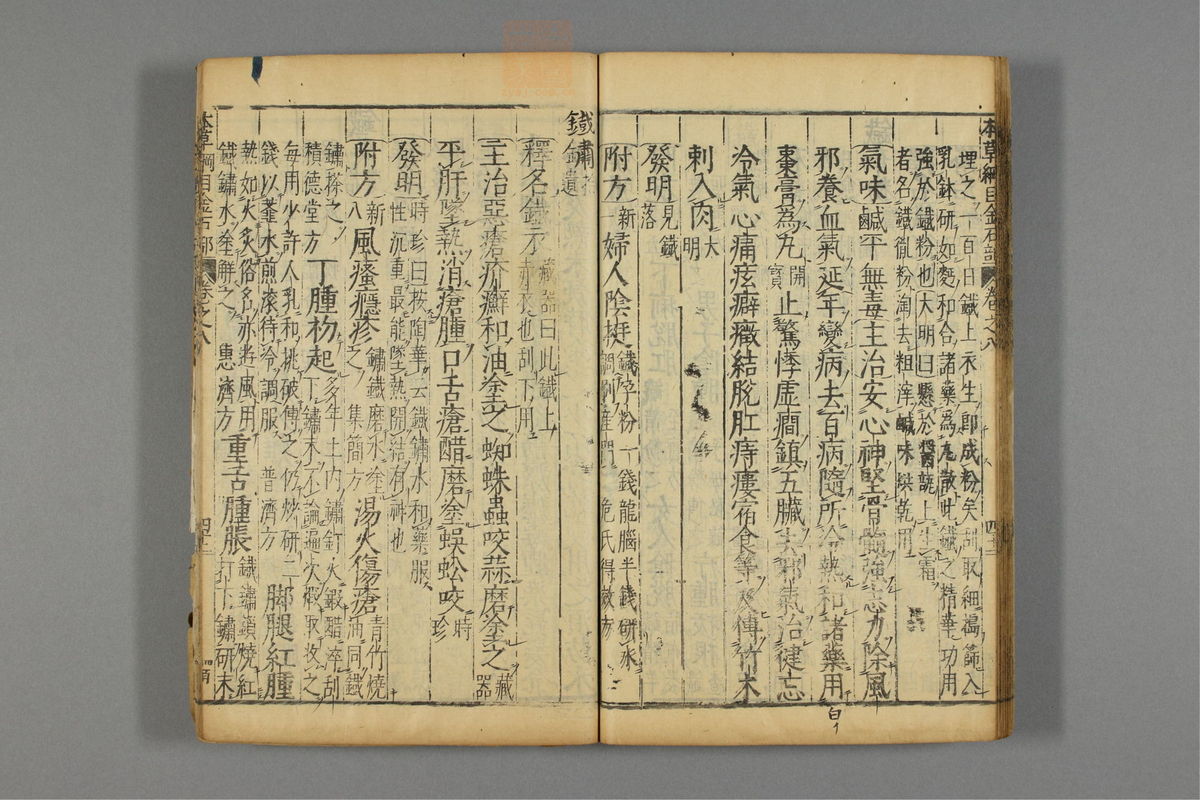 本草綱目金石部 卷之八 四十三
埋之一百日鐵上衣生即成粉矣刮取細搗篩入
乳鉢研如麪和合諸藥爲丸散此鐵之精華功用
強於鐵粉也大明曰懸於醬瓿上生霜
者名鐵胤粉淘去粗滓鹹味烘乾用
氣味鹹平無毒主治安心神堅骨髓強志力除風
邪養血氣延年變病去百病隨所冷熱和諸藥用
棗膏為丸開寶止驚悸虛癇鎮五臟去邪氣治健忘
冷氣心痛痃癖癥結脫肛痔瘻宿食等及傅竹木
刺入肉大明
發明見鐵落
附方新一婦人陰挺鐵孕粉一錢龍腦半錢研水
調刷產門 危氏得效方
鐵鏽拾遺
釋名鐵衣藏器曰此鐵上
赤衣也刮下用
主治惡瘡疥癬和油塗之蜘蛛蟲咬蒜磨塗之藏器
平肝墜熱消瘡腫口舌瘡醋磨塗蜈蚣咬時珍
發明時珍曰按陶華云鐵鏽水和藥服
性沉重最能墜熱開結有神也
附方新八風瘙癮疹鏽鐵磨水塗
之 集簡方湯火傷瘡青竹燒
油同鐵
鏽搽之
積德堂方丁腫初起多年土內鏽釘火煅醋淬刮
下鏽末不論遍次煅取收之
每用少許人乳和挑破傅之仍炒研二
錢以虀水煎滾待冷調服 普濟方脚腿紅腫
熱如火炙俗名赤遊風用
鐵鏽水塗解之 惠濟方重舌腫脹鐵鏽鎖燒紅
打下鏽研末